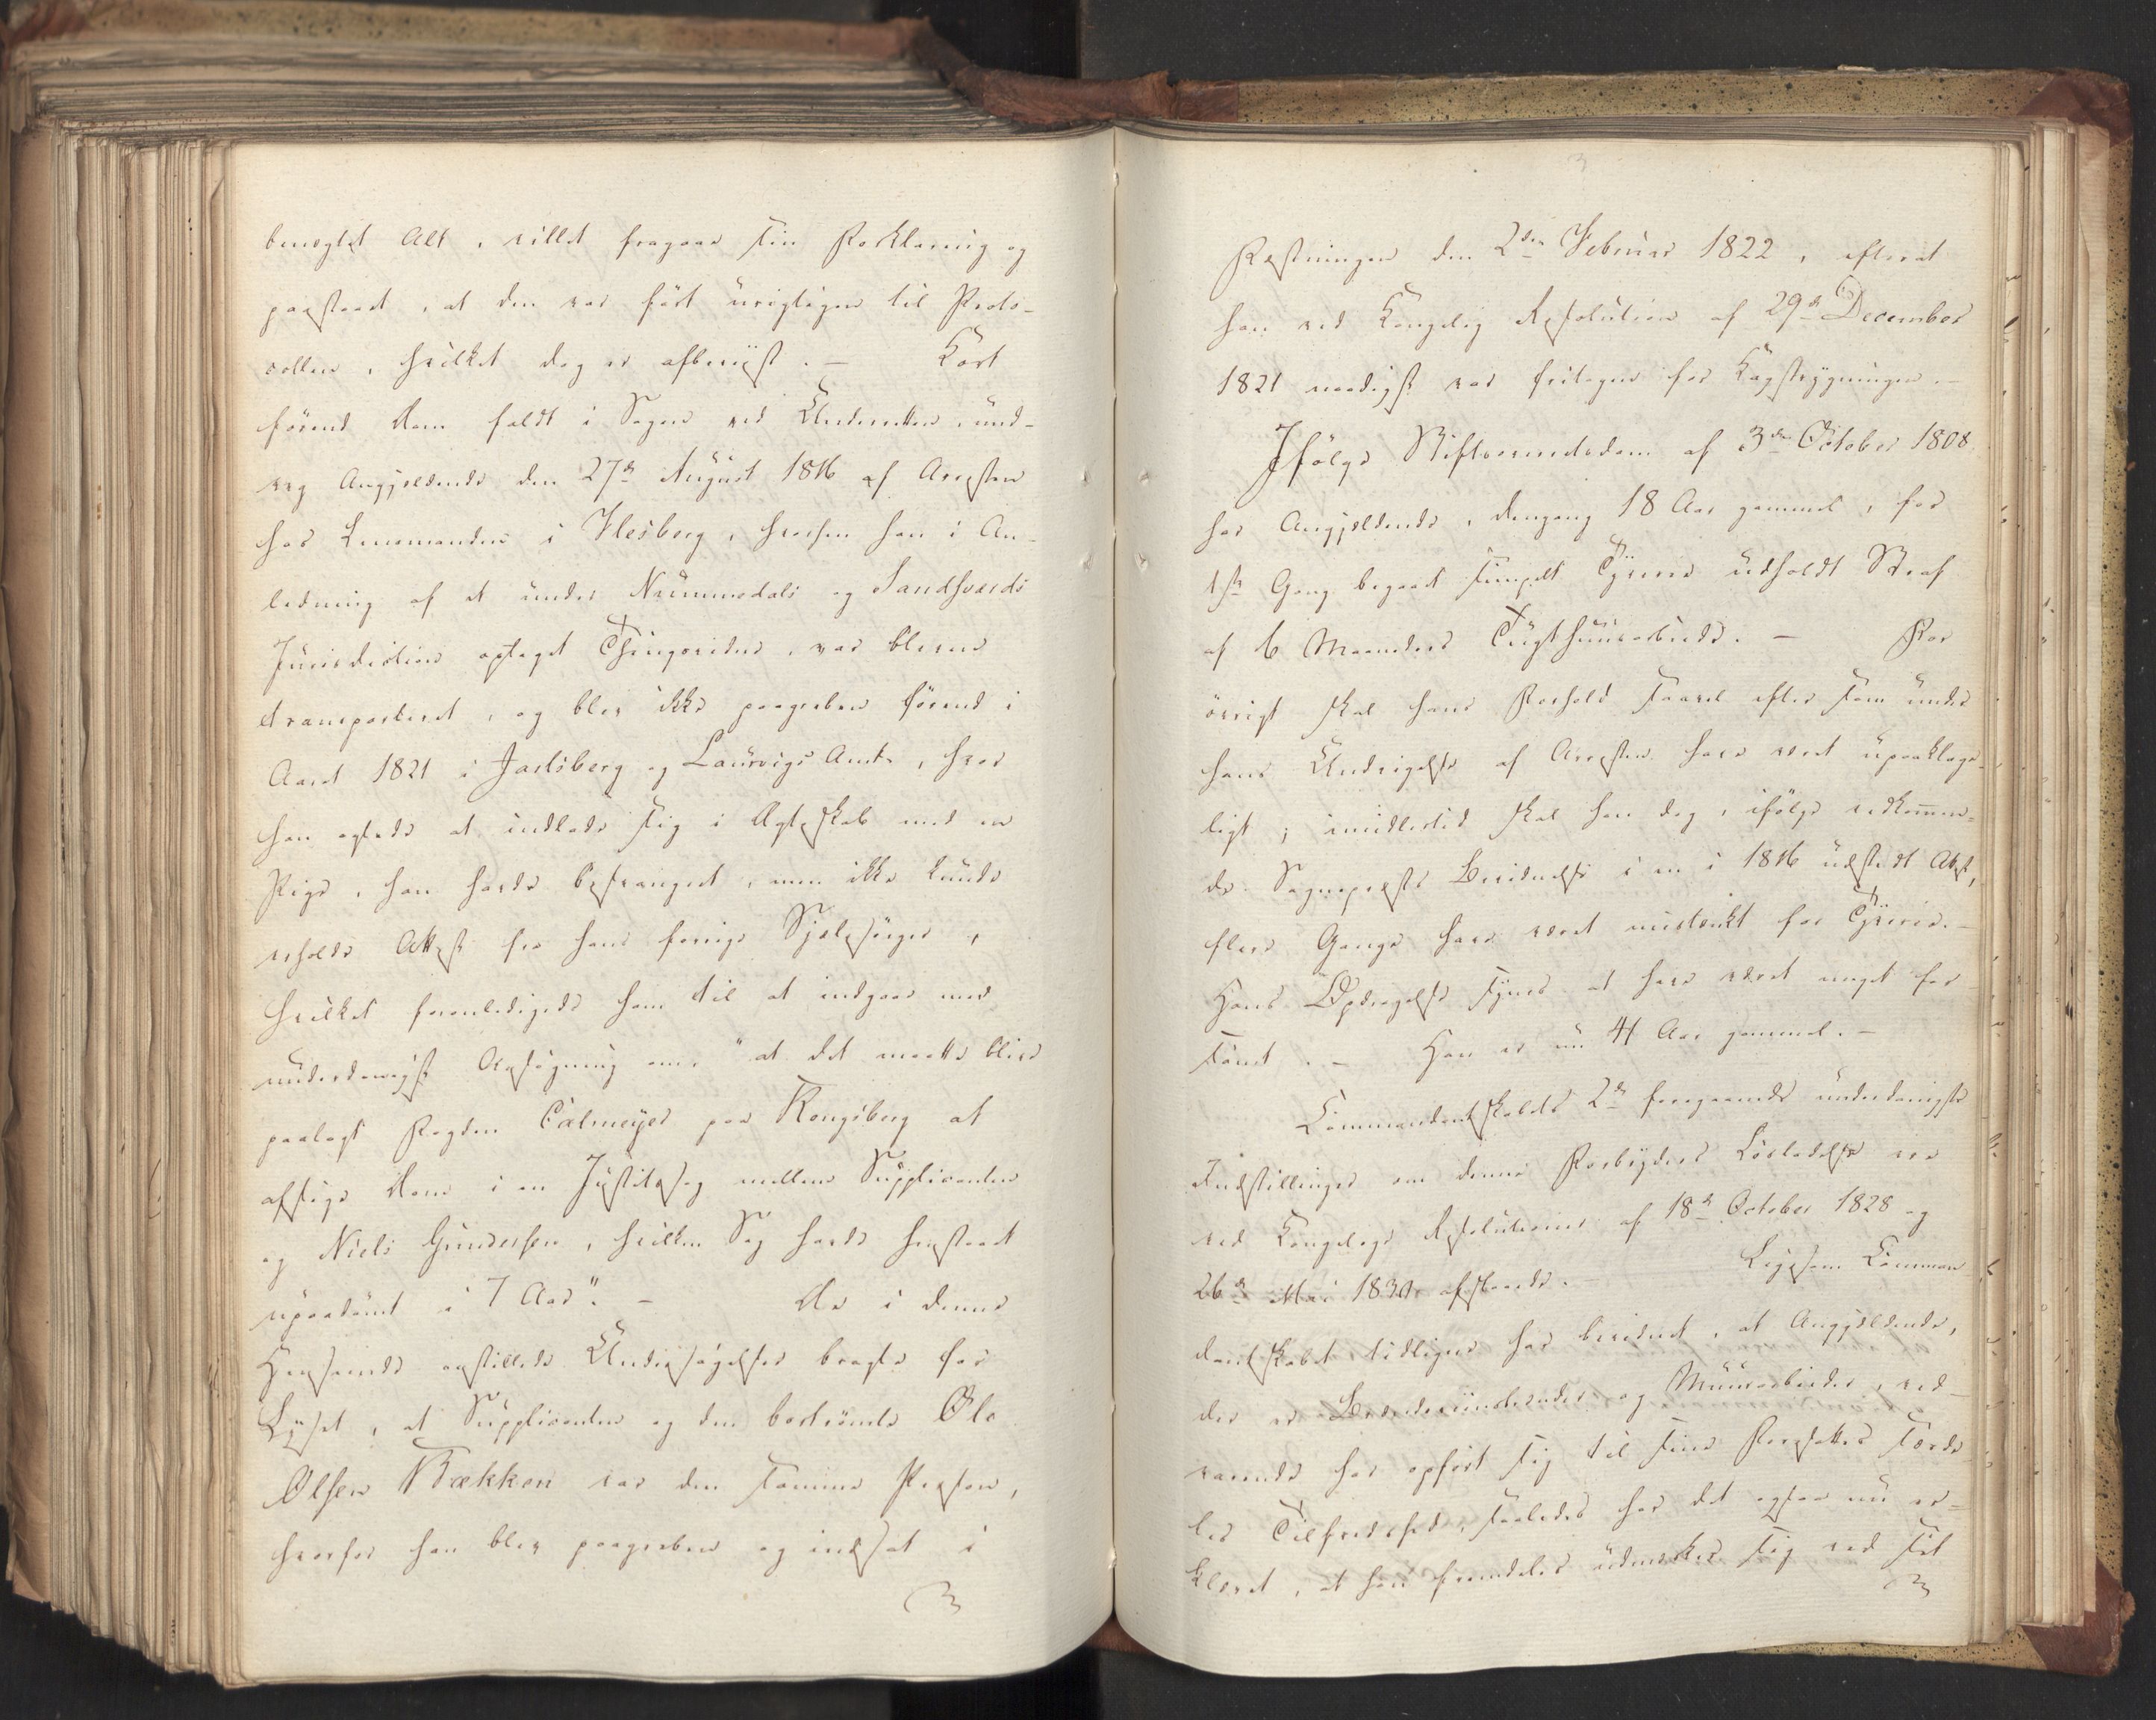 benegtet Alt, villet fragaae sin Forklaring og
paastaaet, at den var ført urigtigen til Proto-
collen, hvilket dog er afbeviist. — Kort
førend Dom faldt i Sagen ved Underretten, und-
veg Angjeldende den 27de August 1816 af Arresten
hos Lensmanden i Flesberg, hvorhen han i An-
ledning af et under Nummedals og Sandsværds
Jurisdiction optaget Thingsvidne, var bleven
transporteret, og blev ikke paagreben førend i
Aaret 1821 i Jarlsberg og Laurvigs Amt, hvor
han agtede at indlade sig i Ægteskab med en
Pige, han havde besvangret, men ikke kunde
erholde Attest fra hans forrige Sjælesørger,
hvilket foranledigede ham til at indgaae med
underdanigst Ansøgning om, "at det maatte blive
paalagt Fogden Calmeyer paa Kongsberg at
afsige Dom i en Justitssag mellem Supplicanten
og Niels Gundersen, hvilken Sag havde henstaaet
upaadømt i 7 Aar". — De i denne
Henseende anstillede Undersøgelser bragte for
Lyset, at Supplicanten og den bortrømte Ole
Olsen Bækken var den samme Person,
hvorfor han blev paagreben og indsat i
Fæstningen den 2den Februar 1822, efterat
han ved Kongelig Resolution af 29de December
1821 naadigst var fritagen for Kagstrygningen. —
Ifølge Stiftsoverretsdom af 3die October 1808
har Angjeldende, dengang 18 Aar gammel, for
1ste Gang begaaet simpelt Tyverie udholdt Straf
af 6 Maaneders Tugthuusarbeide. — For
øvrigt skal hans Forhold saavel efter som under
hans Undvigelse af Arresten have været upaaklage-
ligt; imidlertid skal han dog, ifølge vedkommen-
de Sognepræsts Beviidnelse i en i 1816 udstædt Attest,
flere Gange have været mistænkt for Tyverie. —
Hans Opdragelse synes at have været meget for-
sømt. — Han er nu 41 Aar gammel. —
Commandantskabets 2de foregaaende underdanigste
Indstillinger om denne Forbryders Løsladelse ere
ved Kongelige Resolutioner af 18de October 1828 og
26de Mai 1830 afslaaede. — Ligesom Comman-
dantskabet tidligere har bevidnet, at Angjeldende,
der er Brønderunderender og Muurarbeider, ved-
varende har opført sig til sine Foresattes særde-
les Tilfredshed, saaledes har det ogsaa nu er-
klæret, at han fremdeles udmærker sig ved sit